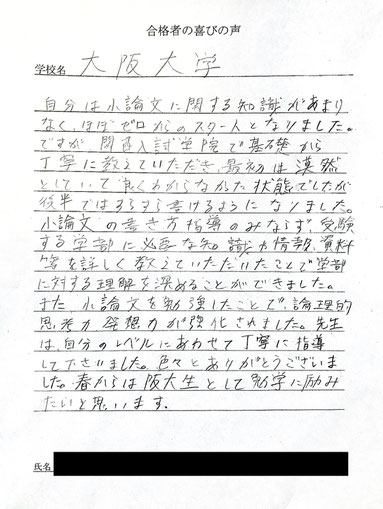 合格者の喜びの声
学校名 大阪大学
自分は小論文に関する知識があまり
なく、ほぼゼロからのスタートとなりました。
ですが関西入試学院で基礎から
丁寧に教えていただき、最初は漠然
としていて良くわからなかった状態でしたが
後半ではすらすら書けるようになりました。
小論文の書き方指導のみならず、受験
する学部に必要な知識や情報、資料
等を詳しく教えていただいたことで学部
に対する理解を深めることができました。
また、小論文を勉強したことで、論理的
思考力、発想力が強化されました。先生
は、自分のレベルにあわせて丁寧に指導
して下さいました。色々とありがとうございま
した。春からは阪大生として勉学に励み
たいと思います。
氏名